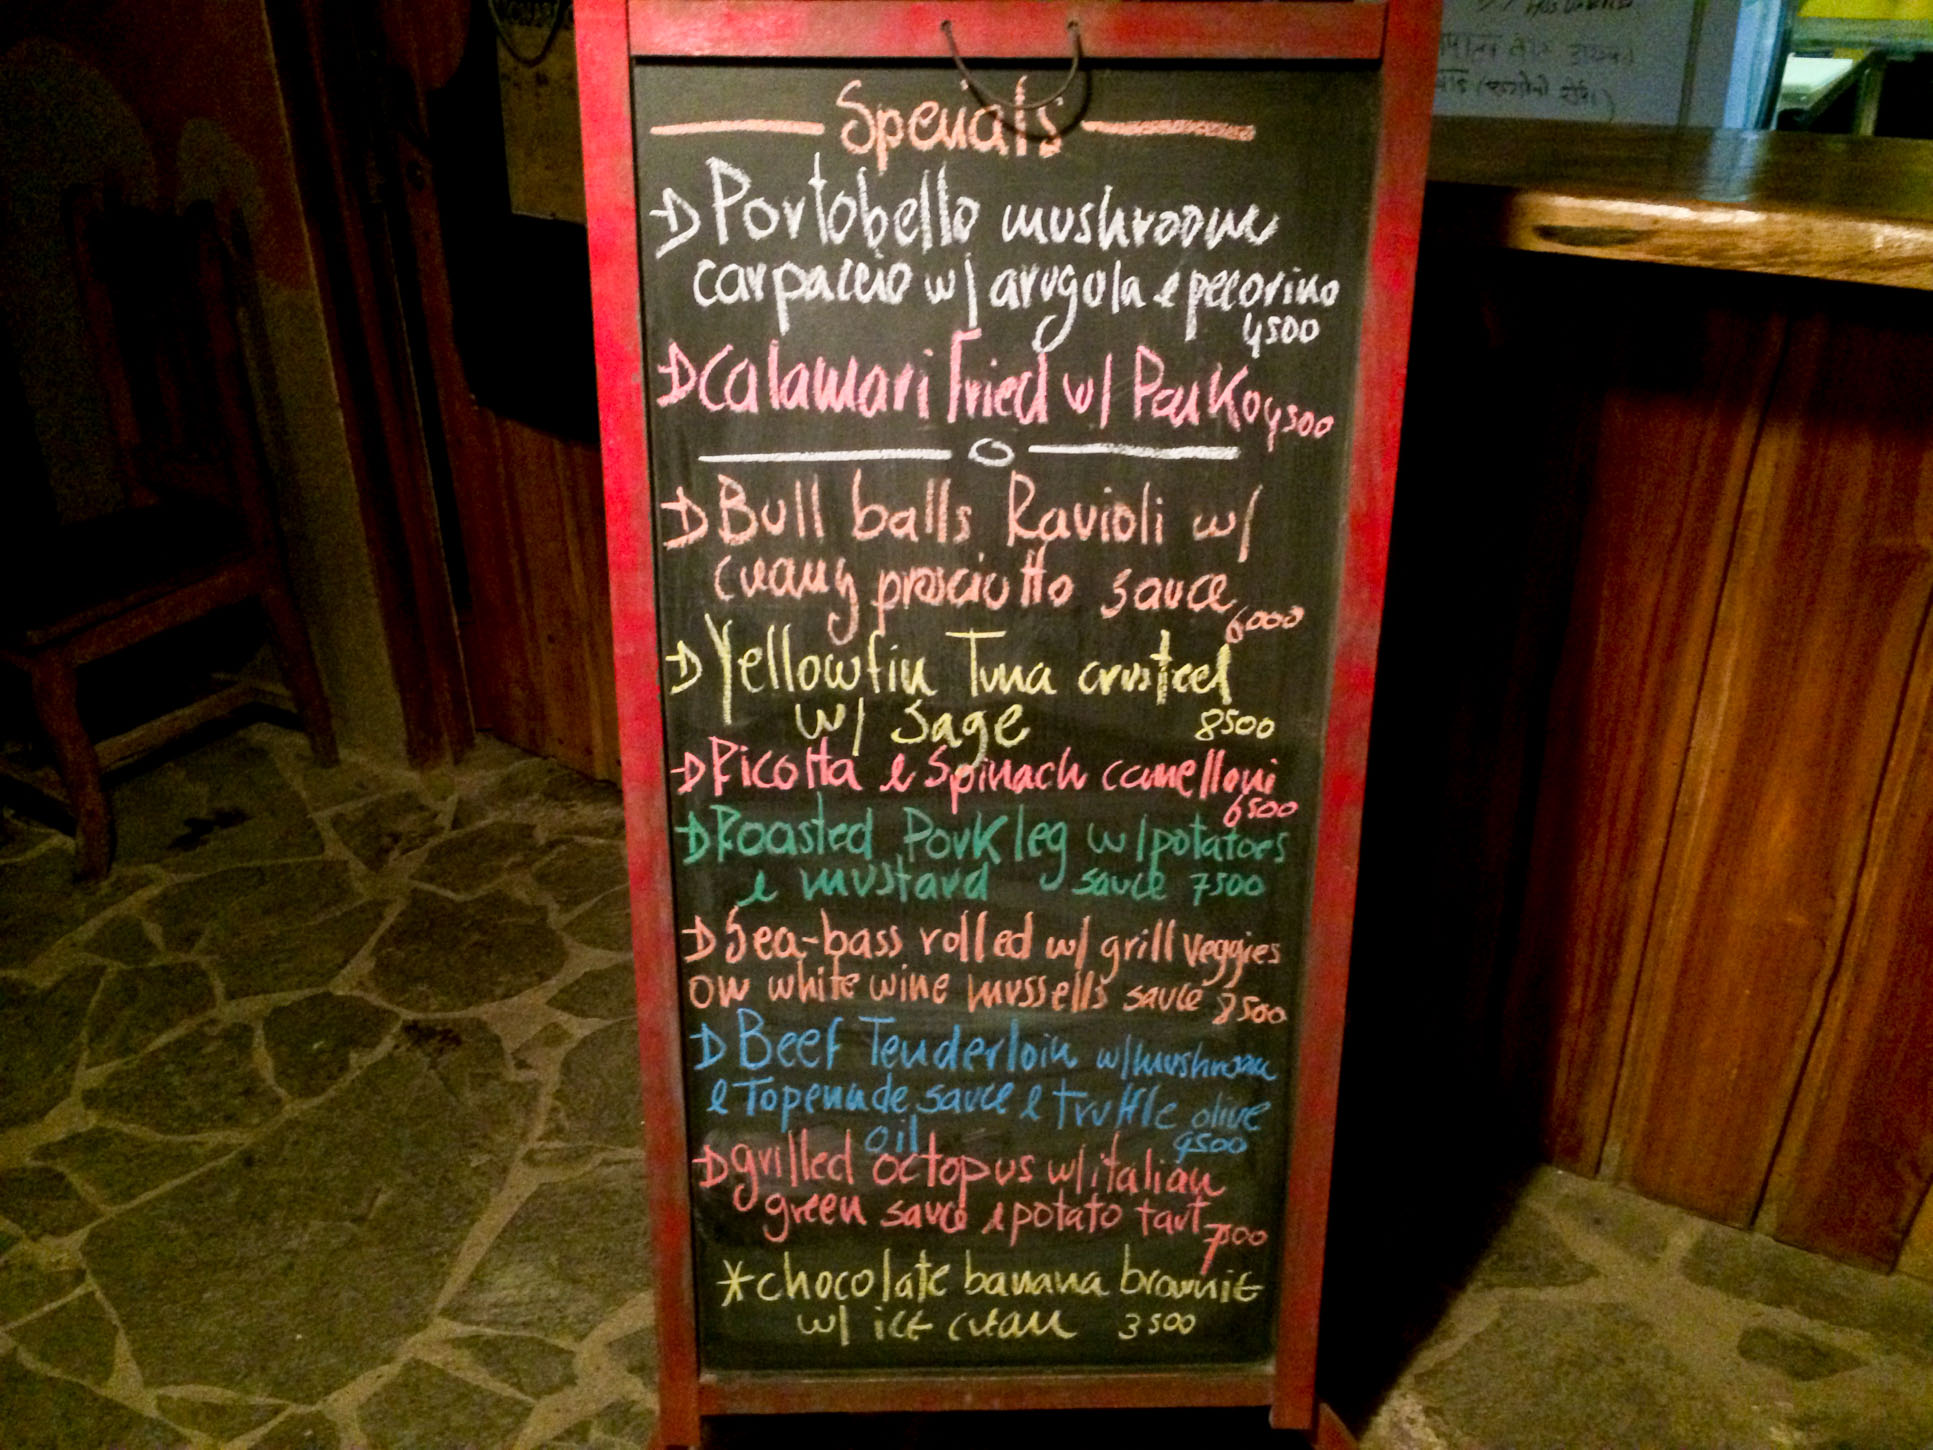 Specials
Portobello mushroom
carpaccio w/ arugula e pecorino
4500
Calamari Fried w/ Panko 4500
Bull balls Ravioli w/
creamy prosciutto sauce
6000
Yellowfin Tuna crusteed
w/ sage 8500
Ricotta e Spinach cannelloni
6500
Roasted Pork leg w/ potatoes
e mustard sauce 7500
Sea-bass rolled w/ grill veggies
ow white wine mussells sauce 8500
Beef Tenderloin w/ mushroom
e Tapenade sauce e truffle olive
oil 9500
grilled octopus w/ italian
green sauce e potato tart
chocolate banana brownie
w/ ice cream 3500